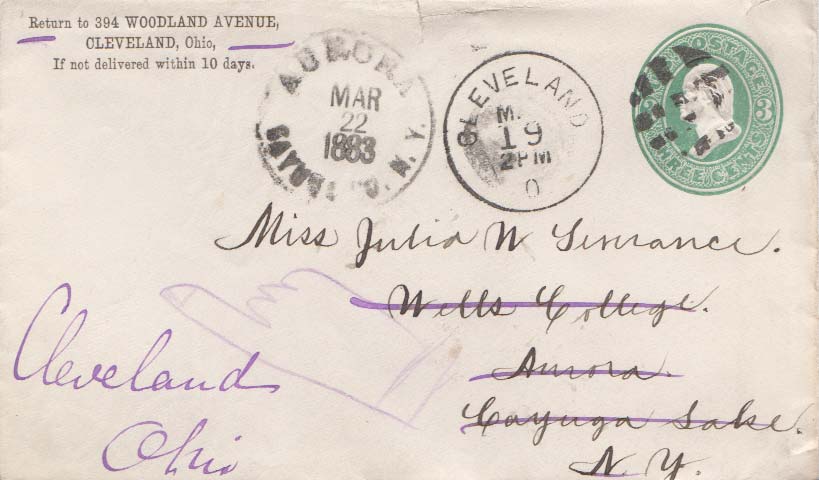 Return to 394 WOODLAND AVENUE,
CLEVELAND, Ohio,
If not delivered within 10 days.
AURORA
MAR
22
1883
CAYUGA CO. N.Y.
CLEVELAND
M
19
2PM
O
POSTAGE
3
THREE CENTS
Miss Julia N
Wells College.
Aurora.
Cayuga Lake.
N. Y.
Cleveland
Ohio